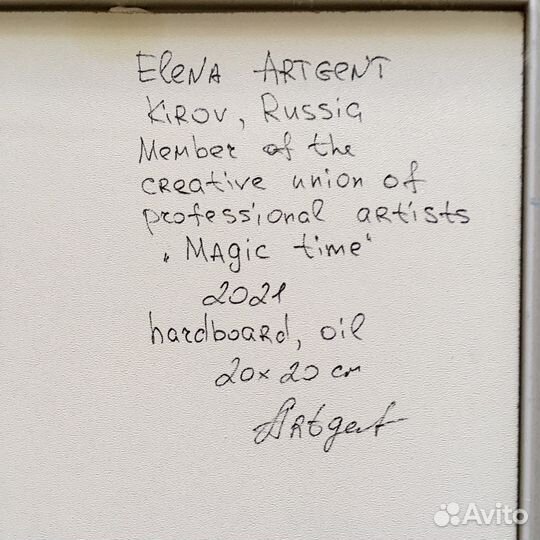 Elena Artgent
Kirov, Russia
Member of the
creative union of
professional artists
„Magic time“
2021
hardboard, oil
20 x 20 cm
Artgent
Avito